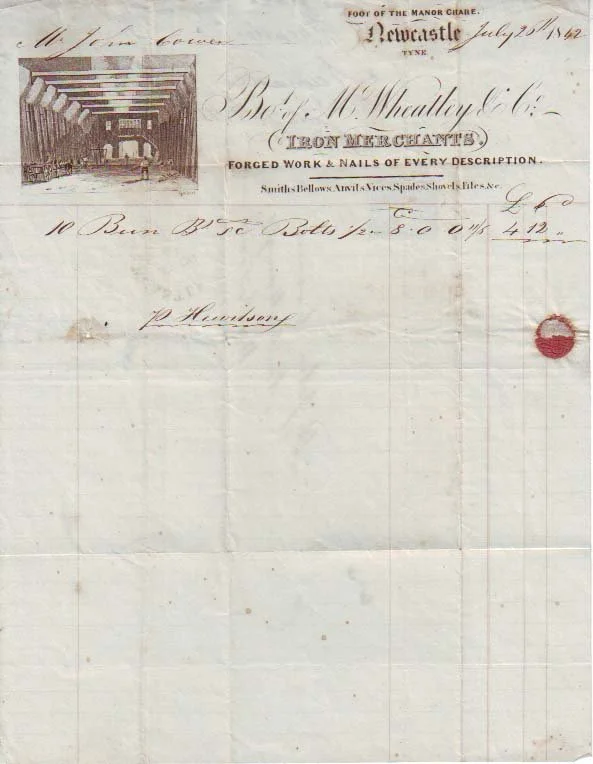 FOOT OF THE MANOR CHARE.
Newcastle July 26th 1842
TYNE.
Mr John Cowen
Bot. of M. Wheatley & Co.
IRON MERCHANTS,
FORGED WORK & NAILS OF EVERY DESCRIPTION.
Smiths Bellows, Anvils, Vices, Spades, Shovels, Files, &c.
£ s d
10 Bolts 1/2 8 . 0 0 11/6 4 12 "